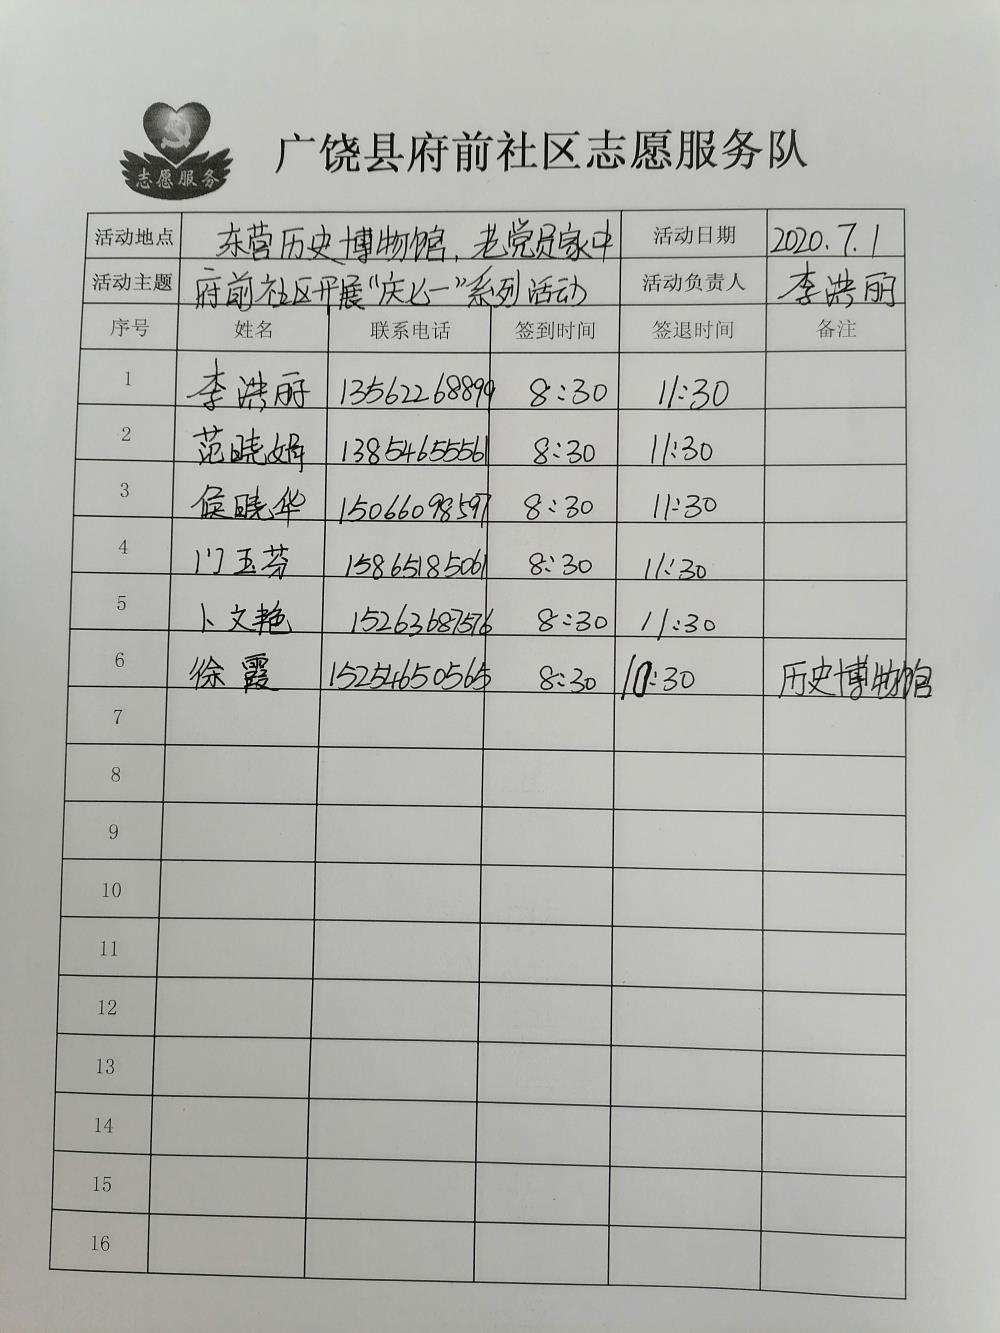 志愿服务
广饶县府前社区志愿服务队
活动地点 东营历史博物馆，老党员家中 活动日期 2020.7.1
活动主题 府前社区开展“庆七一”系列活动 活动负责人 李浩丽
序号 姓名 联系电话 签到时间 签退时间 备注
1 李浩丽 13562268899 8:30 11:30
2 范晓娟 13854655561 8:30 11:30
3 侯晓华 15066098597 8:30 11:30
4 门玉芬 15865185061 8:30 11:30
5 卜文艳 15263687576 8:30 11:30
6 徐霞 15254650565 8:30 10:30 历史博物馆
7
8
9
10
11
12
13
14
15
16